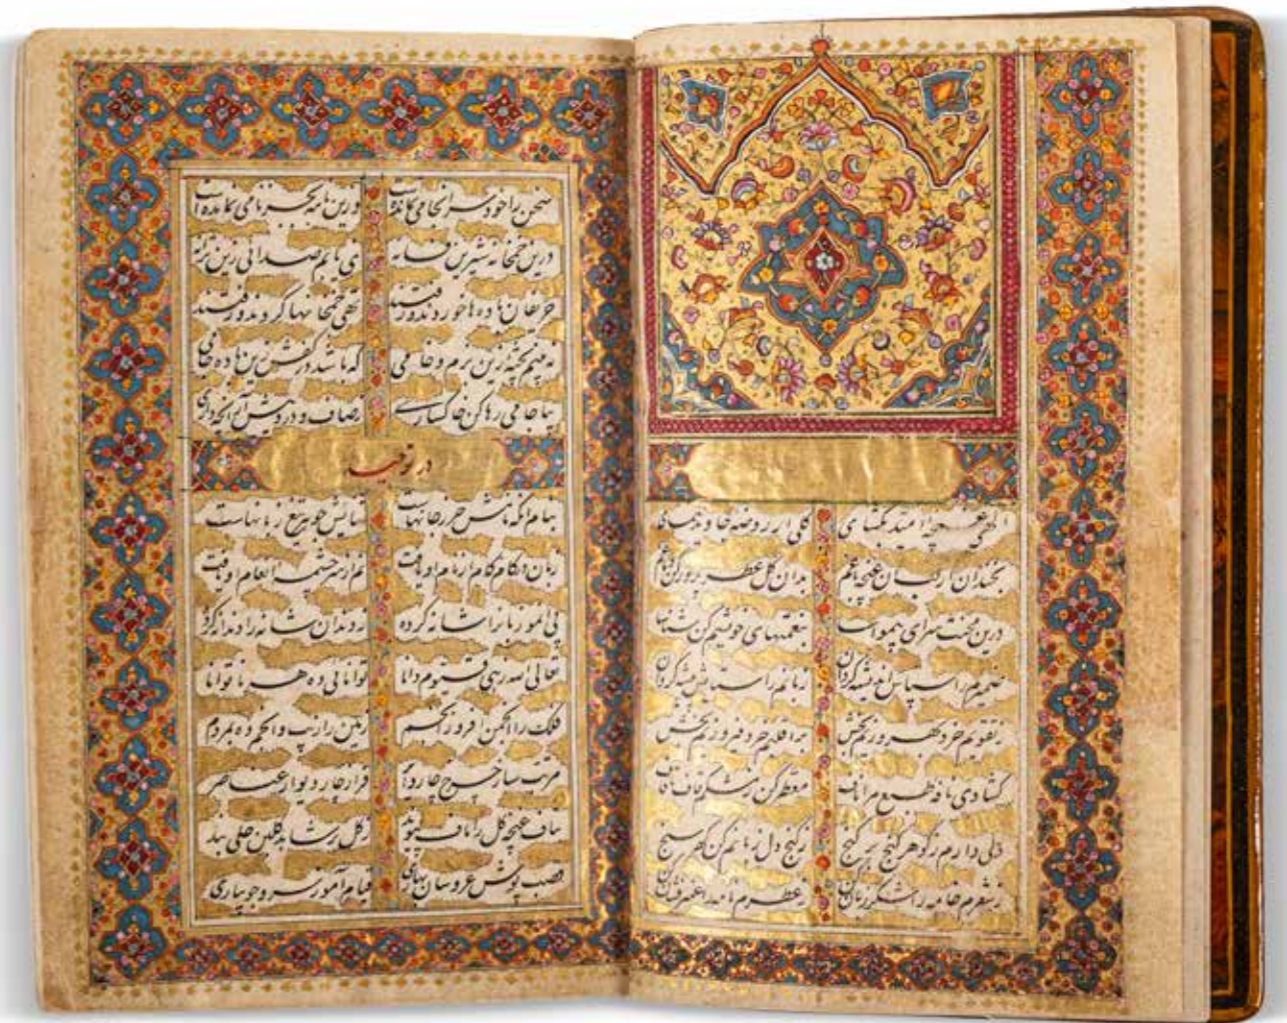 الهی غنچه امید بگشای گلی از روضه جاوید بنمای
بخندان از لب آن غنچه باغم بدان گل عطر پرور کن دماغم
درین محنت سرای بیمواسا بنعمتهای خویشم کن شناسا
ضمیرم را سپاس اندیشه گردان زبانم را ستایش پیشه گردان
بتقویم خرد بهروزیم بخش به اقلیم خرد فیروزیم بخش
گشادی نافه طبع مرا ناف معطر کن ز مشکم قاف تا قاف
دلی دارم ز گوهر گنج بر گنج ز گنج دل زبانم کن گهر سنج
ز شعرم خامه را شکر زبان کن ز عطرم نامه را عنبر فشان کن
سخن را خود سرانجامی نمانده است وزین نامه بجز نامی نمانده است
درین خمخانه شیرین فسانه نمی یابم صدائی زین ترانه
حریفان باده ها خوردند و رفتند تهی خمخانها کردند و رفتند
نه بینم پخته زین بزم و خامی که باشد در کفش زین باده جامی
بیا جامی رها کن خاکساری ز صاف و درد پیش آر آنچه داری
در توحید
بنام آنکه نامش حرز جانهاست ثنایش جوهر تیغ زبانهاست
زبان در کام کام از نام او یافت نم از سرچشمه انعام او یافت
پی آن مو زبانرا شانه کرده ز دندان شانه را دندانه کرده
تعالی الله زهی قیوم دانا توانائی ده هر ناتوانا
فلک را انجمن افروز ز انجم زمین را زیب و انجم ده بمردم
مرتب ساز چرخ فراز چار دیوار عناصر
بناف غنچه گل را نافه پیوند ز گل بر شاهد گلبن حلی بند
قصب پوش عروسان بهاری قیام آموز سرو جویباری